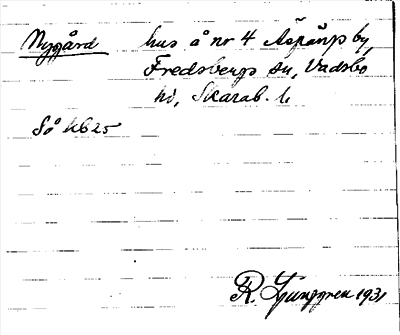 Nygård hus å nr 4 Äspänp by,
Fredsbergs sn, Vadsbo
hd, Skarab. l.
Så Kb 25
R. Ljunggren 1931